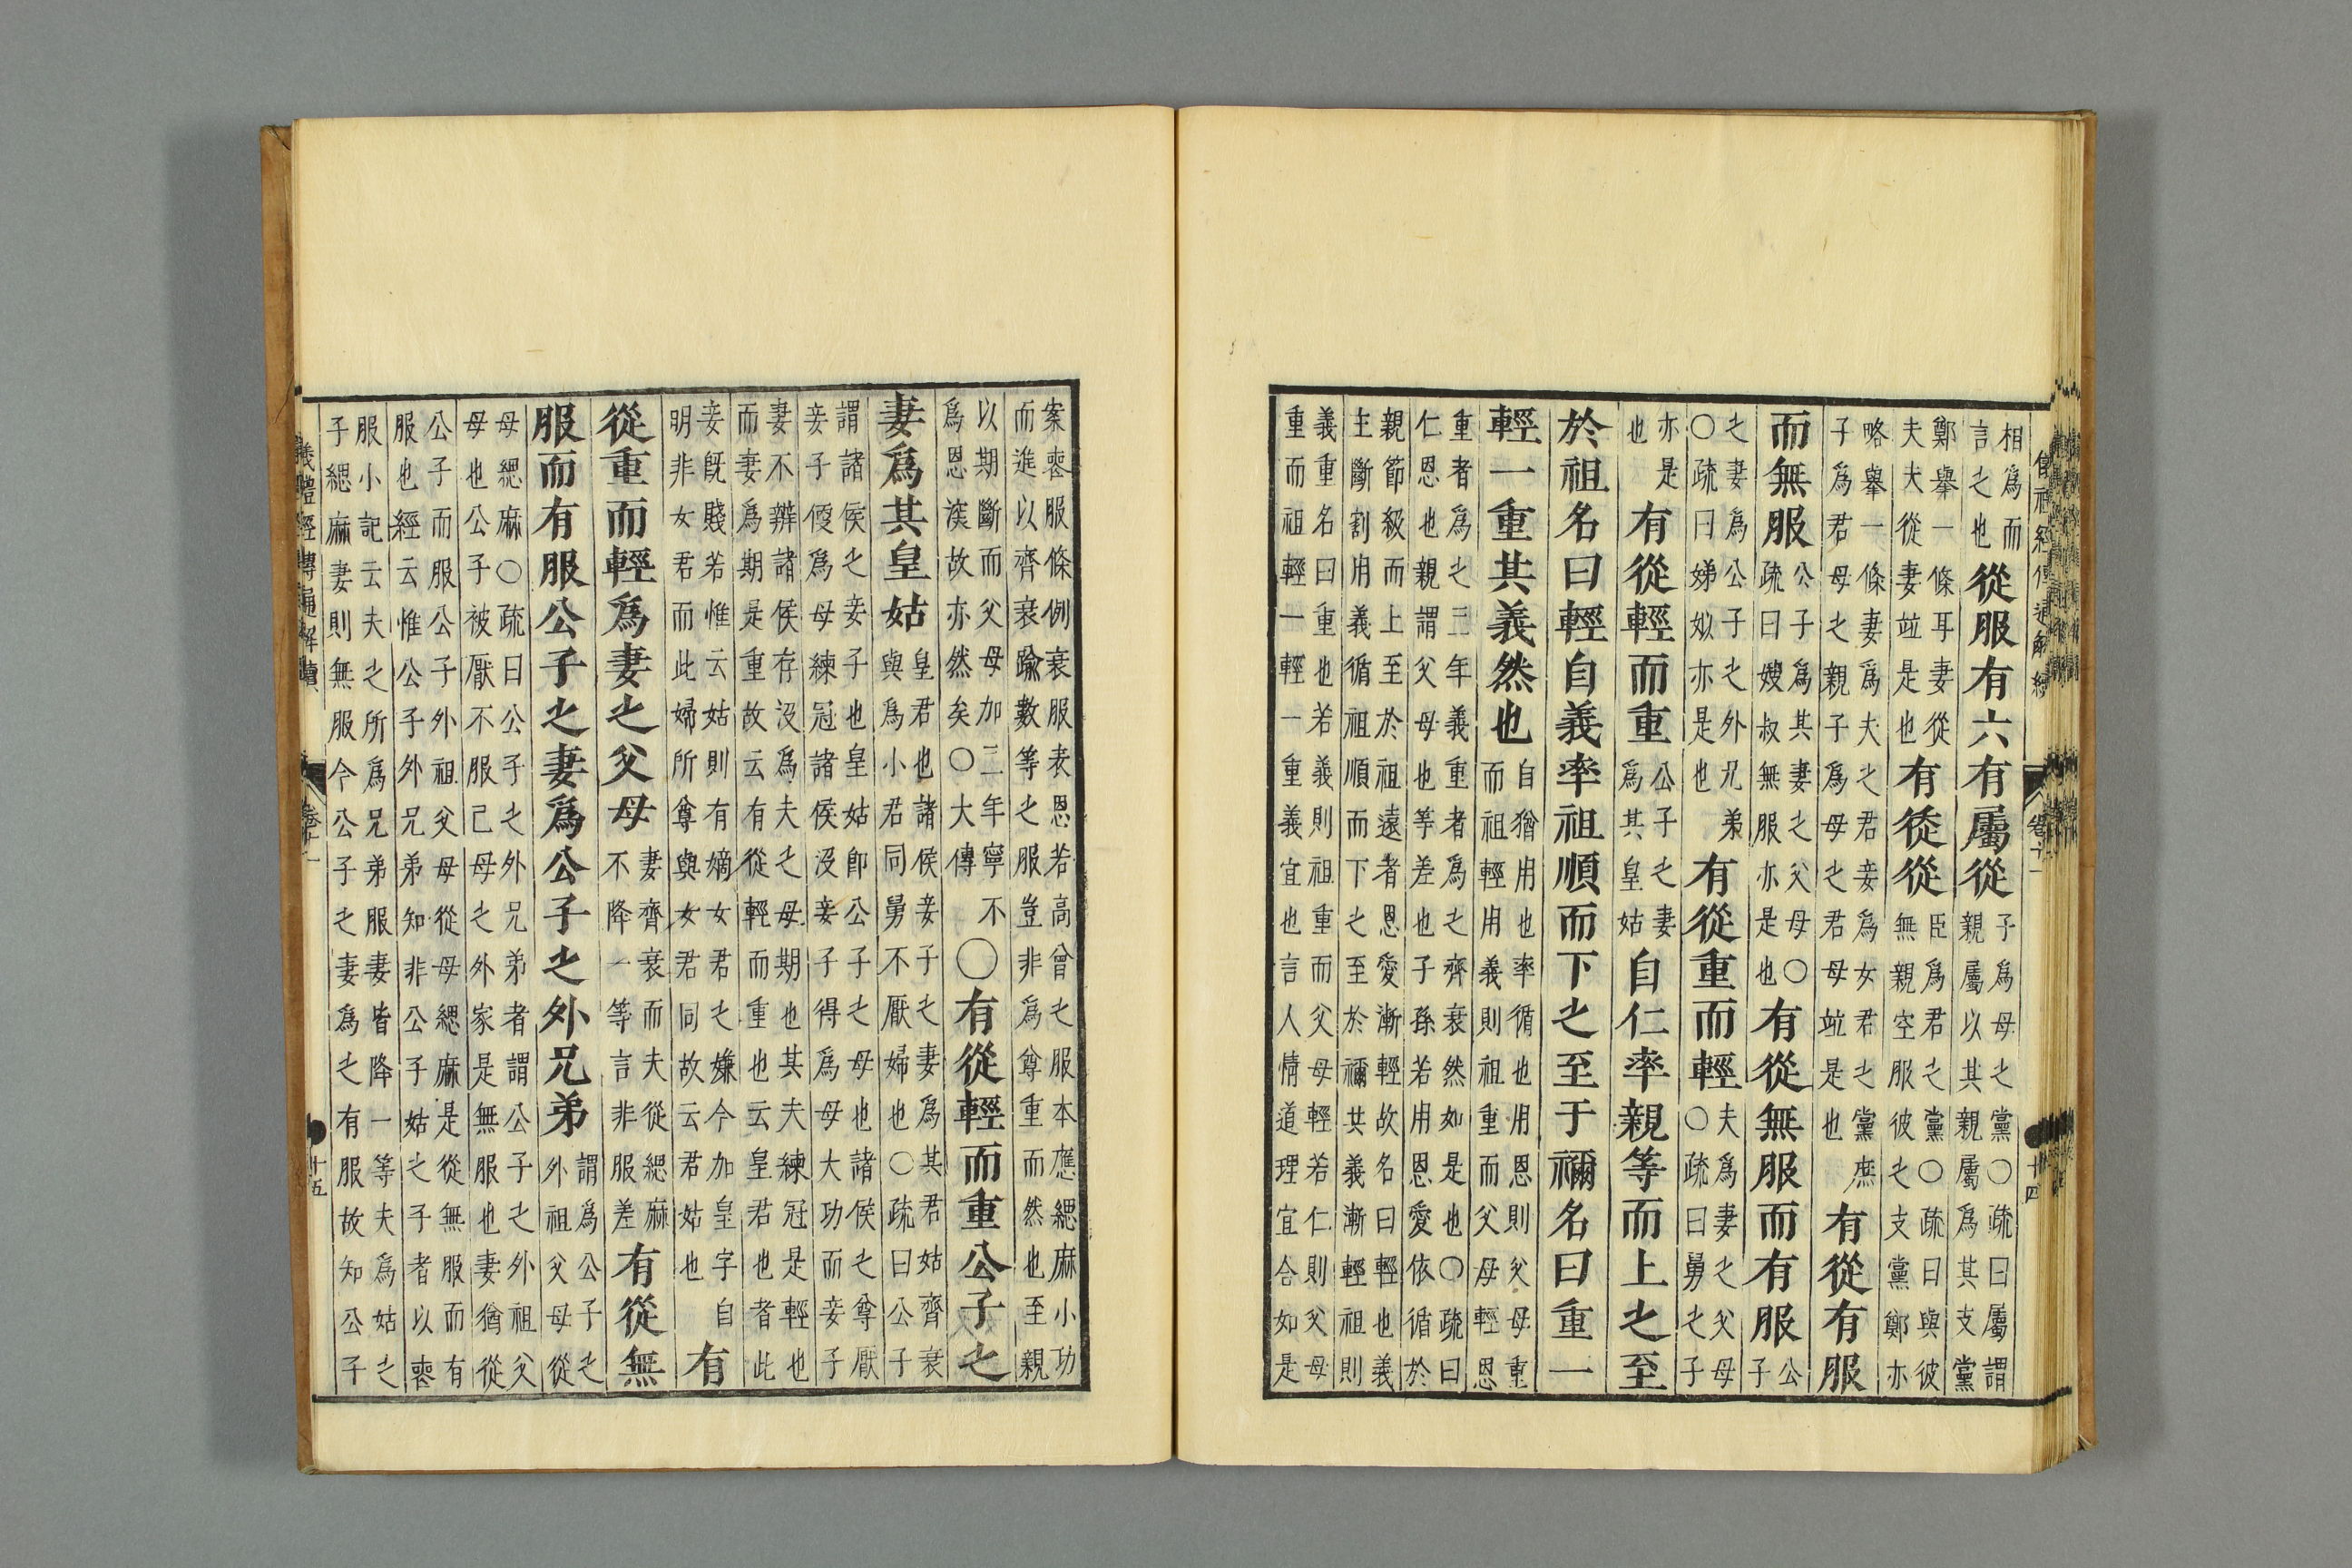 相爲而言之也從服有六有屬從子爲母之黨○疏曰屬謂親屬以其親屬爲其支黨
鄭舉一條耳妻從夫夫從妻竝是也有徒從臣爲君之黨○疏曰與彼無親空服彼之支黨鄭亦
略舉一條妻爲夫之君妾爲女君之黨庶子爲君母之親子爲母之君母竝是也有從有服
而無服公子爲其妻之父母○疏曰嫂叔無服亦是也有從無服而有服公子
之妻爲公子之外兄弟○疏曰娣姒亦是也有從重而輕夫爲妻之父母○疏曰舅之子
亦是也有從輕而重公子之妻爲其皇姑自仁率親等而上之至
於祖名曰輕自義率祖順而下之至于禰名曰重一
輕一重其義然也自猶用也率循也用恩則父母重而祖輕用義則祖重而父母輕恩
重者爲之三年義重者爲之齊衰然如是也○疏曰仁恩也親謂父母也等差也子孫若用恩愛依循於
親節級而上至於祖遠者恩愛漸輕故名曰輕也義主斷割用義循祖順而下之至於禰其義漸輕祖則
義重名曰重也若義則祖重而父母輕若仁則父母重而祖輕一輕一重義宜也言人情道理宜合如是
案喪服條例衰服表恩若高曾之服本應緦麻小功而進以齊衰踰數等之服豈非爲尊重而然也至親
以期斷而父母加三年寧不爲恩深故亦然矣○大傳○有從輕而重公子之
妻爲其皇姑皇君也諸侯妾子之妻爲其君姑齊衰與爲小君同舅不厭婦也○疏曰公子
謂諸侯之妾子也皇姑即公子之母也諸侯之尊厭妾子使爲母練冠諸侯没妾子得爲母大功而妾子
妻不辨諸侯存没爲夫之母期也其夫練冠是輕也而妻爲期是重故云有從輕而重也云皇君也者此
妾既賤若惟云姑則有嫡女君之嫌今加皇字自明非女君而此婦所尊與女君同故云君姑也有
從重而輕爲妻之父母妻齊衰而夫從緦麻不降一等言非服差有從無
服而有服公子之妻爲公子之外兄弟謂爲公子之外祖父母從
母緦麻○疏曰公子之外兄弟者謂公子之外祖父母也公子被厭不服己母之外家是無服也妻猶從
公子而服公子外祖父母從母緦麻是從無服而有服也經云惟公子外兄弟知非公子姑之子者以喪
服小記云夫之所爲兄弟服妻皆降一等夫爲姑之子緦麻妻則無服今公子之妻爲之有服故知公子
儀禮經傳通解續 卷十一 十五